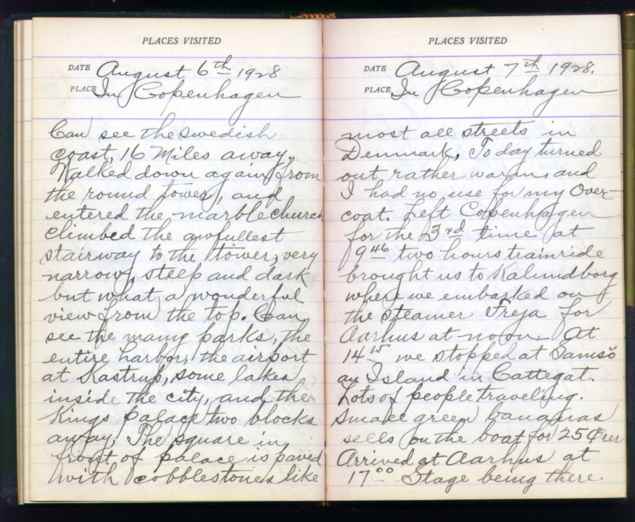 PLACES VISITED
DATE August 6th 1928
PLACE In Copenhagen
Can see the Swedish
coast, 16 miles away.
Walked down again from
the round tower, and
entered the marble church
climbed the awfullest
stairway to the tower, very
narrow, steep and dark
but what a wonderful
view from the top. Can
see the many parks, the
entire harbor, the airport
at Kastrup, some lakes
inside the city, and the
Kings palace two blocks
away. The square in
front of palace is paved
with cobblestones like
PLACES VISITED
DATE August 7th 1928.
PLACE In Copenhagen
most all streets in
Denmark. Today turned
out rather warm, and
I had no use for my over-
coat. Left Copenhagen
for the 3rd time at
9 46 two hours trainride
brought us to Kalundborg
where we embarked on
the steamer Freja for
Aarhus at noon. At
14 15 we stopped at Samsö
an Island in Cattegat.
Lots of people traveling.
Small green bananas
sells on the boat for 25
Arrived at Aarhus at
17 00 Stage being there.